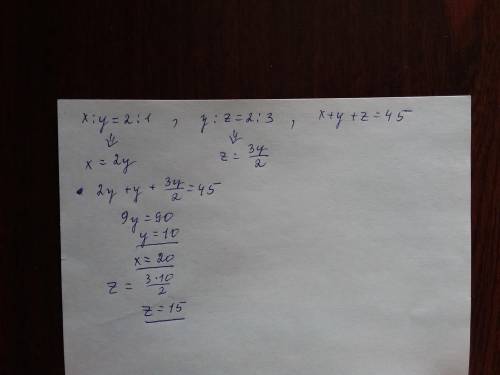 x:y=2:1 , y:z=2:3 , x+y+z=45
⇓ ⇓
x=2y z=3y/2
• 2y+y+3y/2=45
9y=90
y=10
x=20
z=3·10/2
z=15